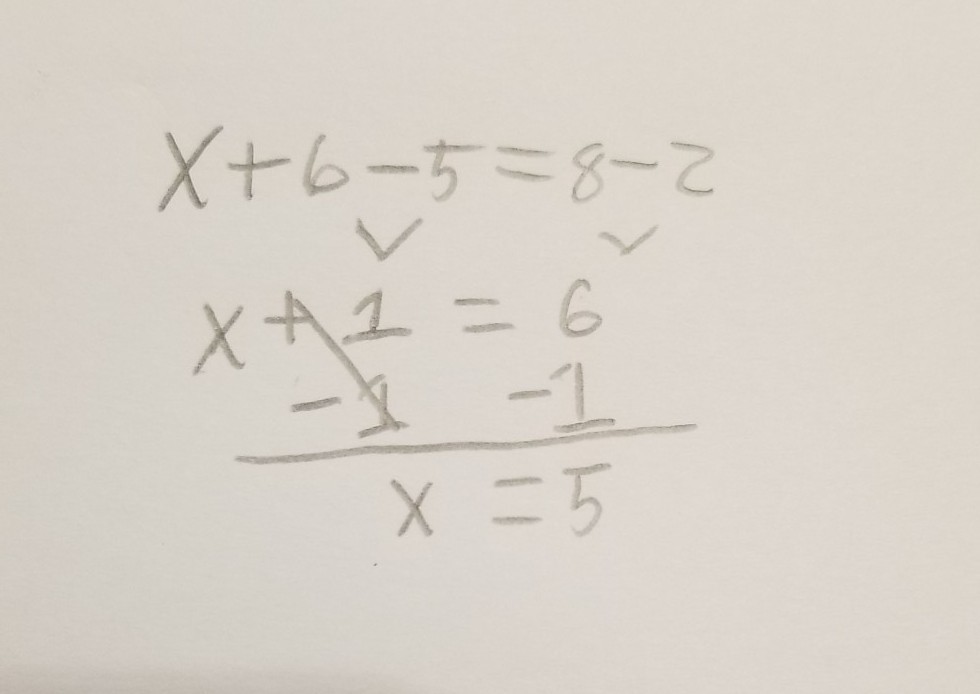 X+6-5=8-2
x+1=6
-1 -1
x=5